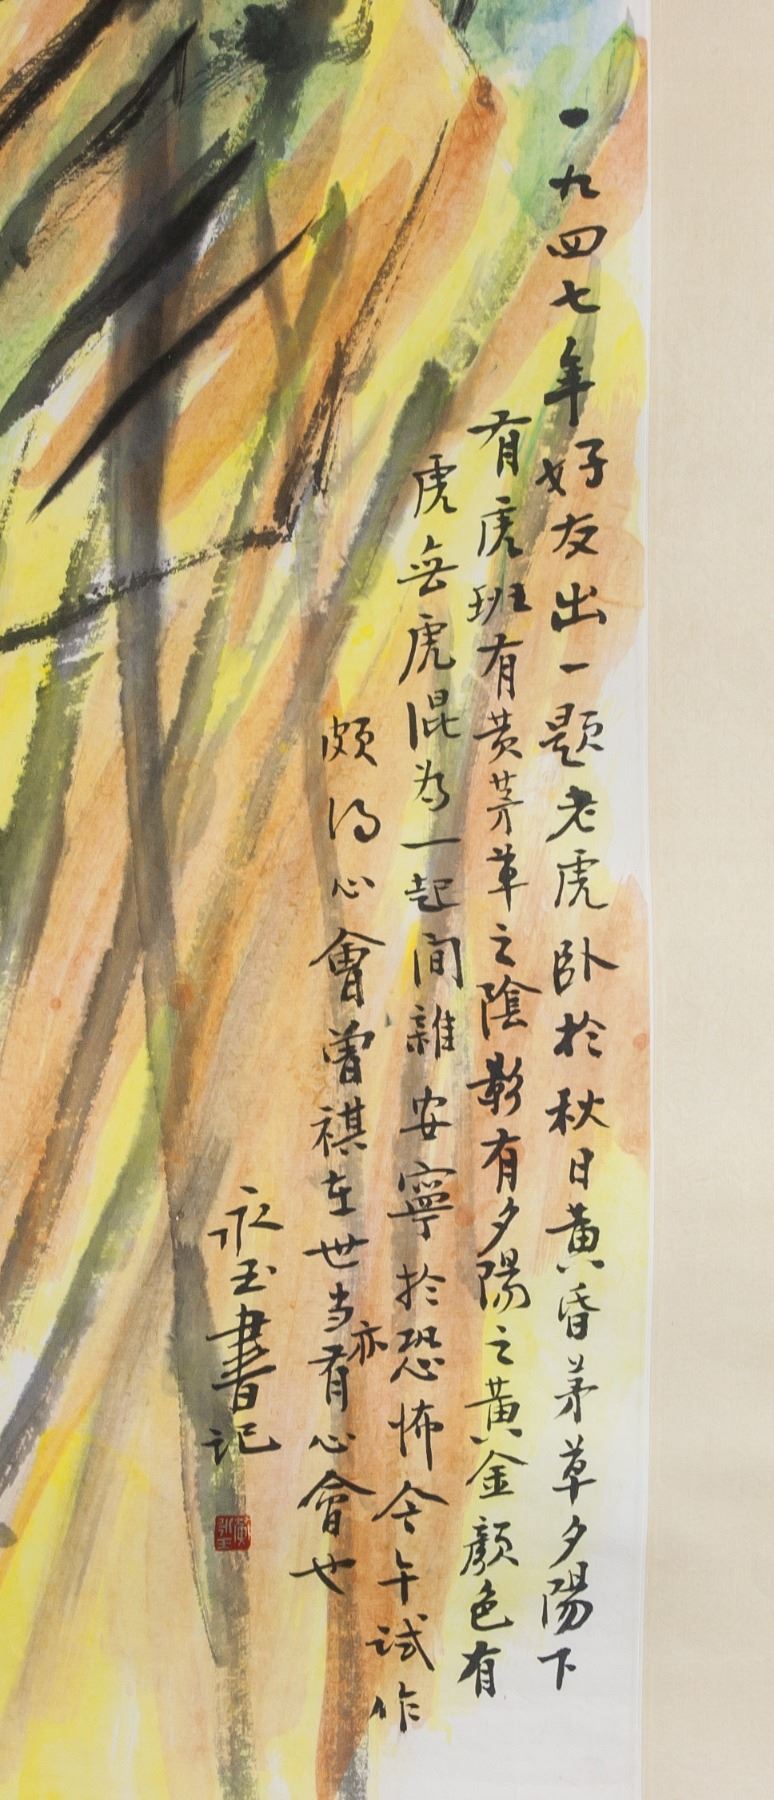 一九四七年好友出一題老虎卧於秋日黄昏茅草夕陽下
有虎班有黄芳草之陰影有夕陽之黄金顏色有
虎無虎混為一起间雜安寧於恐怖今午試作
颇得心會曾祺在世当亦有心會也
永玉書记
黄永玉